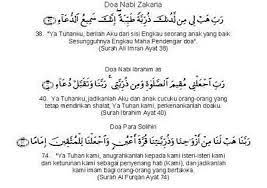 Doa Nabi Zakaria
رَبِّ هَبْ لِى مِن لَّدُنكَ ذُرِّيَّةً طَيِّبَةً ۖ إِنَّكَ سَمِيعُ الدُّعَاءِ
38. "Ya Tuhanku, berilah Aku dari sisi Engkau seorang anak yang baik.
Sesungguhnya Engkau Maha Pendengar doa".
(Surah Ali Imran Ayat 38)
Doa Nabi Ibrahim as
رَبِّ اجْعَلْنِى مُقِيمَ الصَّلَوٰةِ وَمِن ذُرِّيَّتِى ۚ رَبَّنَا وَتَقَبَّلْ دُعَاءِ
40. Ya Tuhanku, jadikanlah Aku dan anak cucuku orang-orang yang
tetap mendirikan shalat, Ya Tuhan kami, perkenankanlah doaku.
(Surah Ibrahim Ayat 40)
Doa Para Solihin
رَبَّنَا هَبْ لَنَا مِنْ أَزْوَٰجِنَا وَذُرِّيَّٰتِنَا قُرَّةَ أَعْيُنٍ وَاجْعَلْنَا لِلْمُتَّقِينَ إِمَامًا
74. "Ya Tuhan kami, anugrahkanlah kepada kami isteri-isteri kami
dan keturunan kami sebagai penyenang hati (kami), dan Jadikanlah
kami imam bagi orang-orang yang bertakwa.
(Surah Al Furqan Ayat 74)